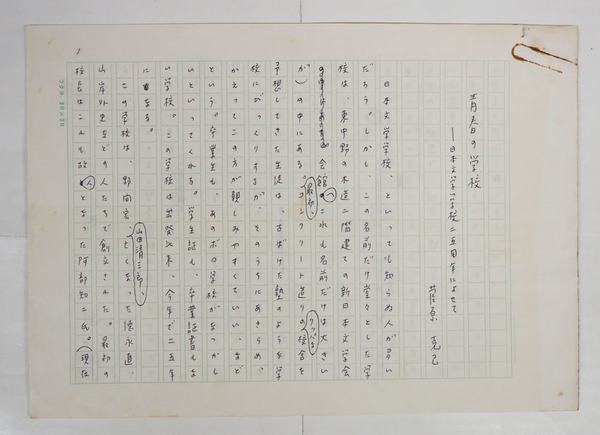 青春の学校
——日本文学学校二五周年によせて
原 克己
日本文学学校、といっても知らぬ人が多い
だろう。しかし、この名前だけ堂々とした学
校は、東中野の木造二階建ての新日本文学会
会館(これも名前だけは大きい
が)の中にある。最初、コンクリート造りのりっぱな校舎を
予想してきた生徒は、古ぼけた塾のような学
校にびっくりするが、そのうちにあきらめ、
かえってこの方が親しみやすくていい、など
という。卒業生も、あのボロ学校がなつかし
いといってくれる。学生証も、卒業証書もな
い学校。この学校は出発以来、今年で二五年
になる。
この学校は、野間宏、山田清三郎、亡くなった徳永直、
山岸外史などの人たちで創立された。最初の
校長はこれも故人となった阿部知二氏。(現在
1
コクヨ 20×20